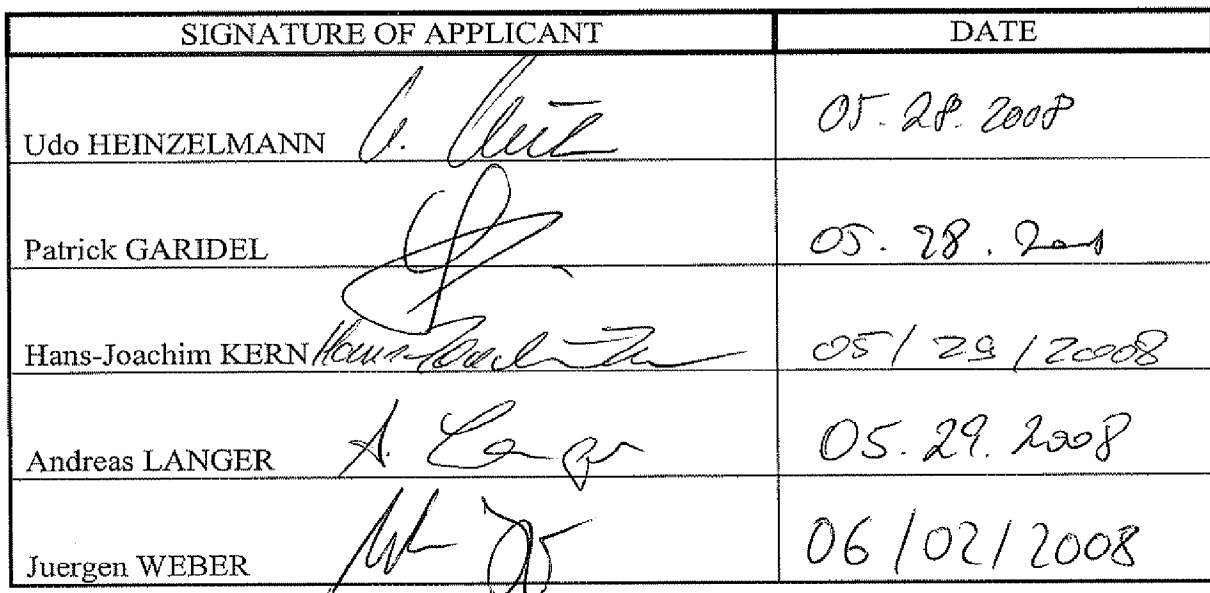 SIGNATURE OF APPLICANT DATE
Udo HEINZELMANN 05.28.2008
Patrick GARIDEL 05.28.
Hans-Joachim KERN Hans-Joachim 05/29/2008
Andreas LANGER A. Langer 05.29.2008
Juergen WEBER 06/02/2008